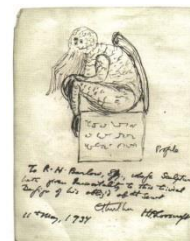 Profile
To R. H. Barlow, Esq., whose Sculpture
hath given Immortality to this trivial
Design of his oblig'd obt Servt
HPLovecraft
11 May, 1934